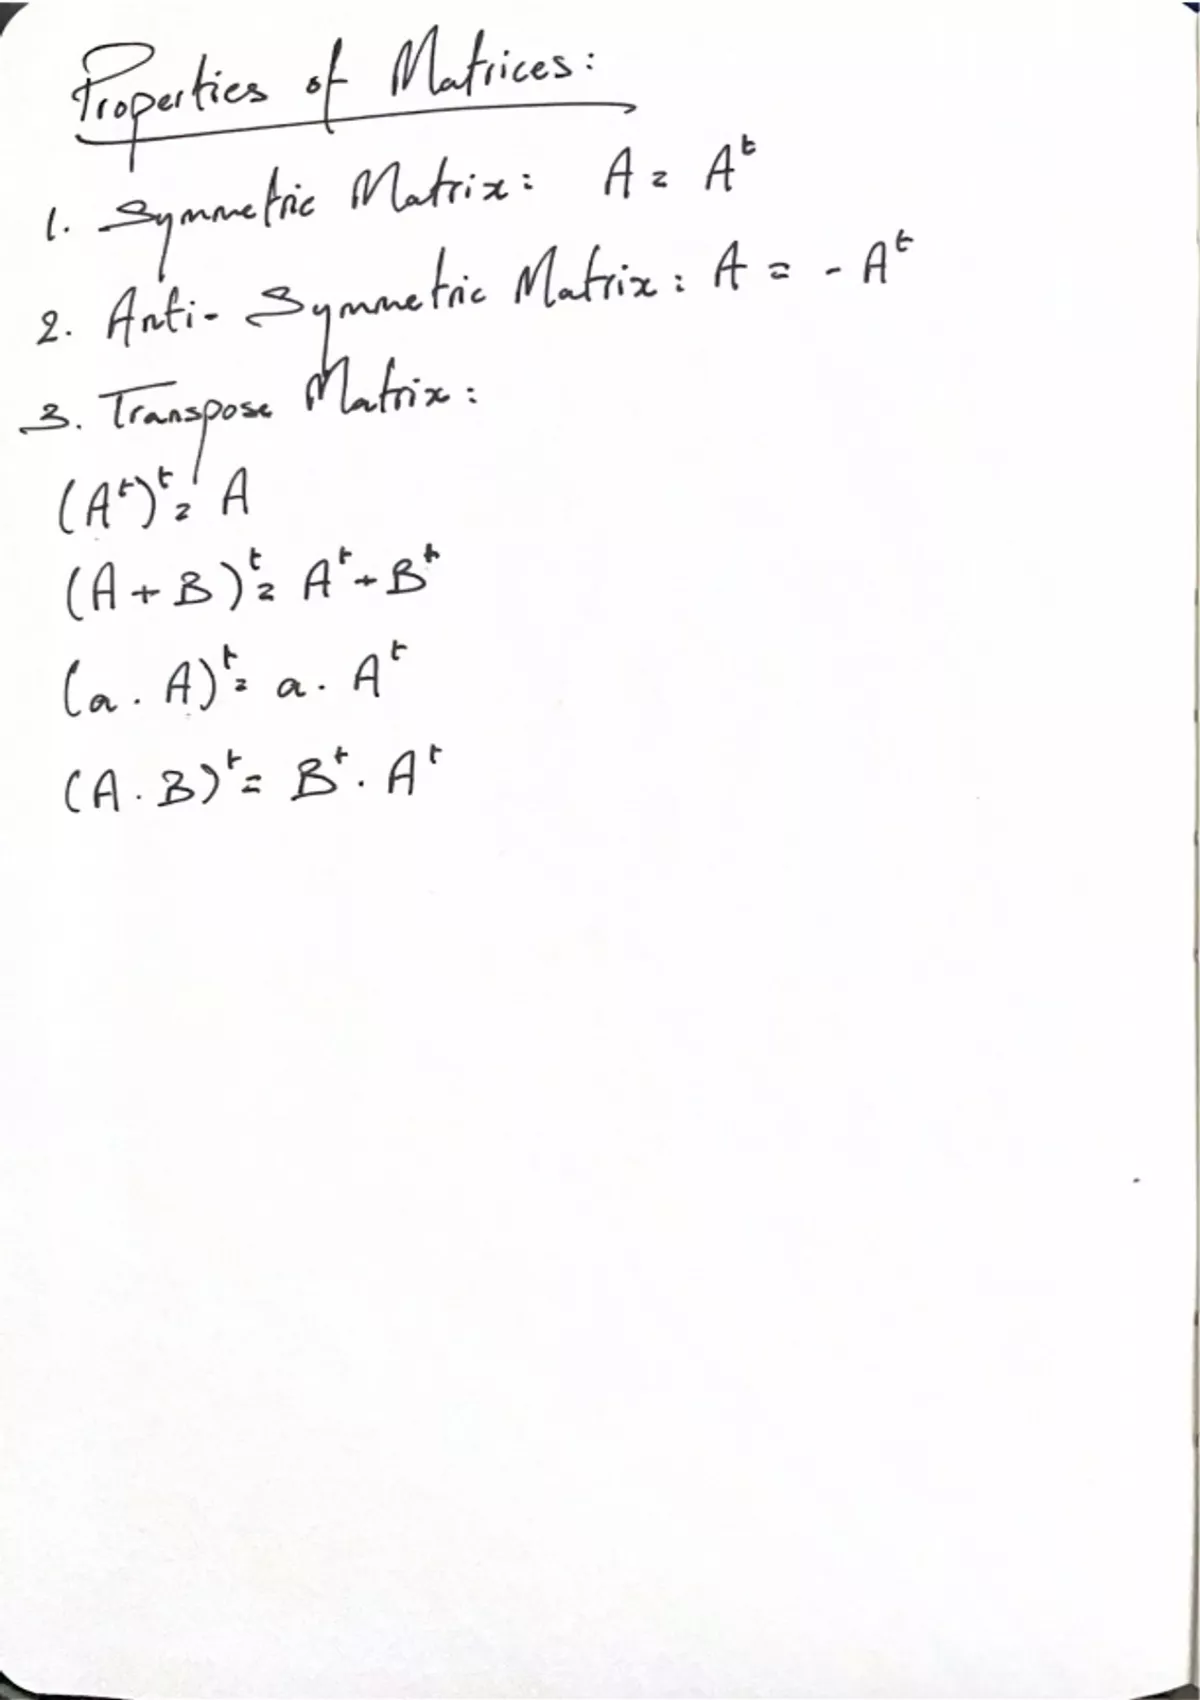 Properties of Matrices:
1. Symmetric Matrix: A = Aᵗ
2. Anti-Symmetric Matrix: A = - Aᵗ
3. Transpose Matrix:
(Aᵗ)ᵗ = A
(A + B)ᵗ = Aᵗ + Bᵗ
(a . A)ᵗ = a . Aᵗ
(A . B)ᵗ = Bᵗ . Aᵗ